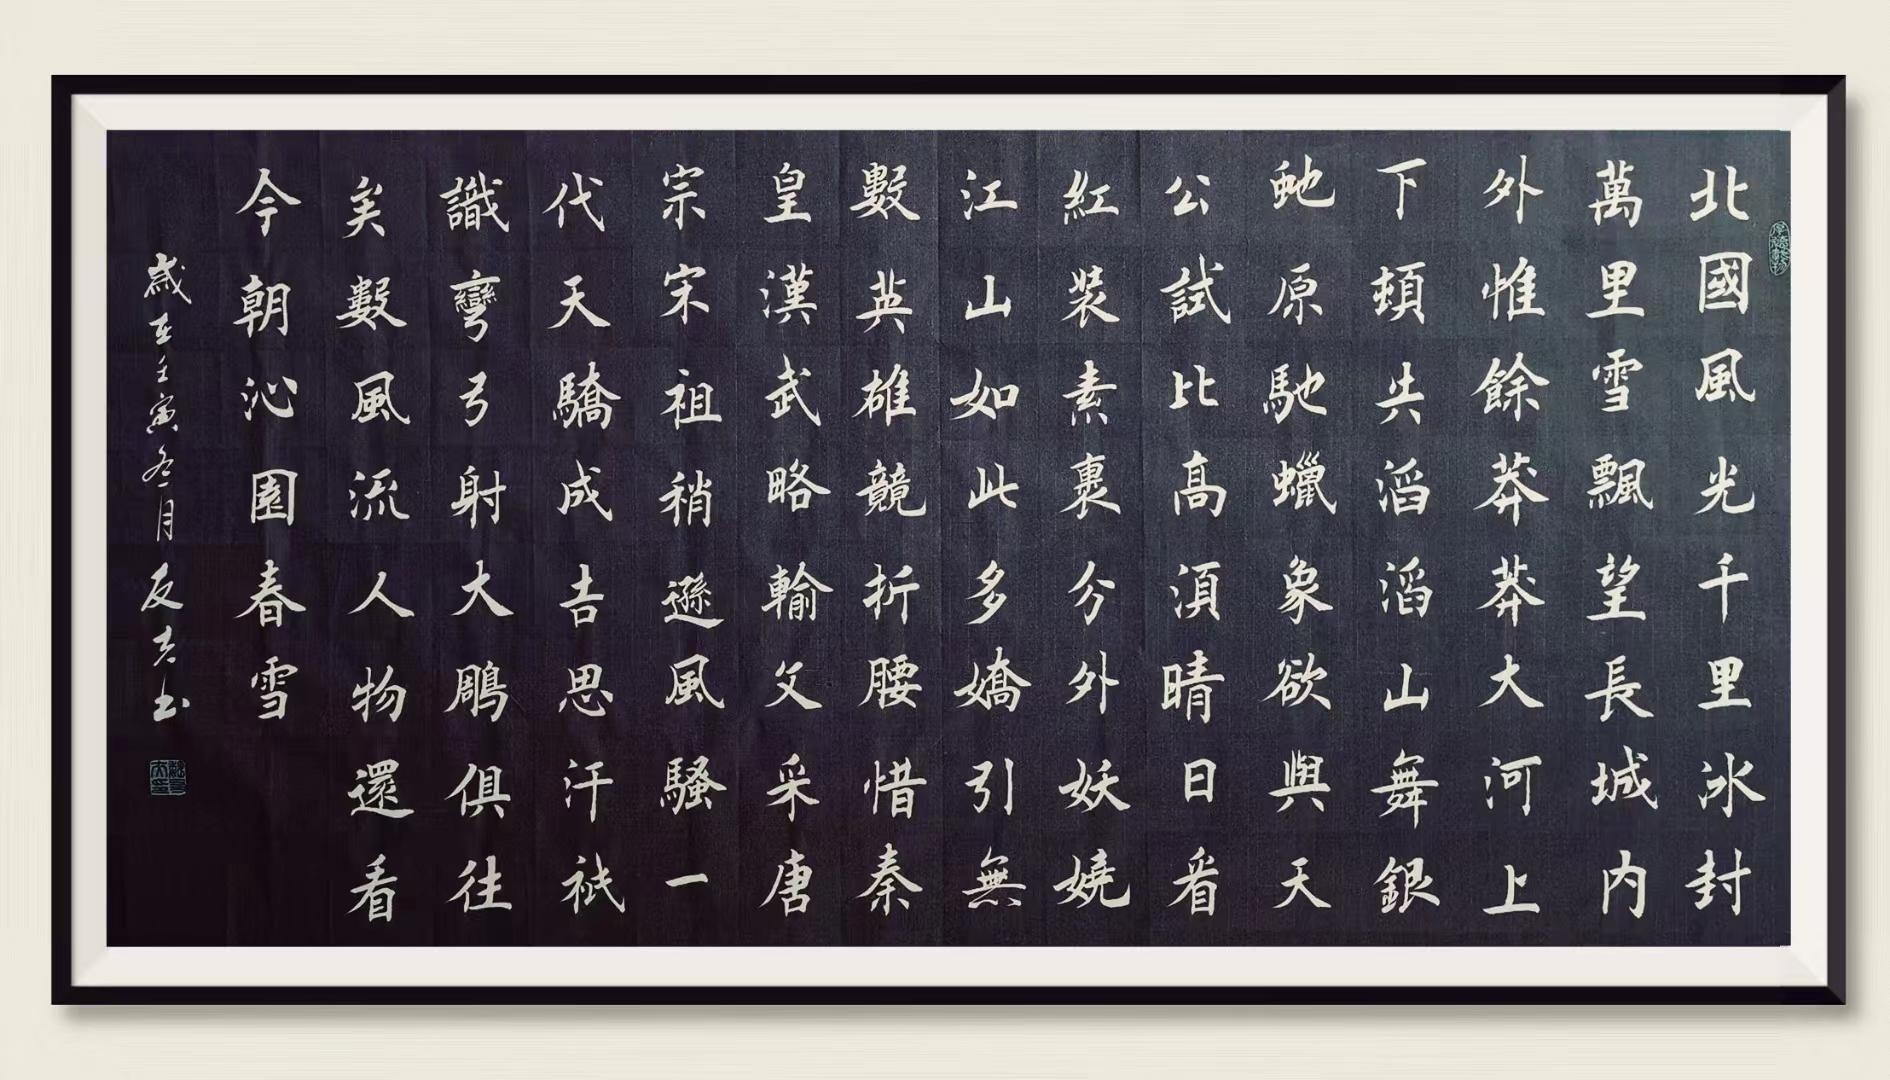 厚德載物
北國風光千里冰封
萬里雪飄望長城内
外惟餘莽莽大河上
下頓失滔滔山舞銀
虵原馳蠟象欲與天
公試比高須晴日看
紅装素裹分外妖嬈
江山如此多嬌引無
數英雄競折腰惜秦
皇漢武略輸文采唐
宗宋祖稍遜風騷一
代天驕成吉思汗祇
識彎弓射大鵰俱往
矣數風流人物還看
今朝沁園春雪
歲在壬寅冬月友书